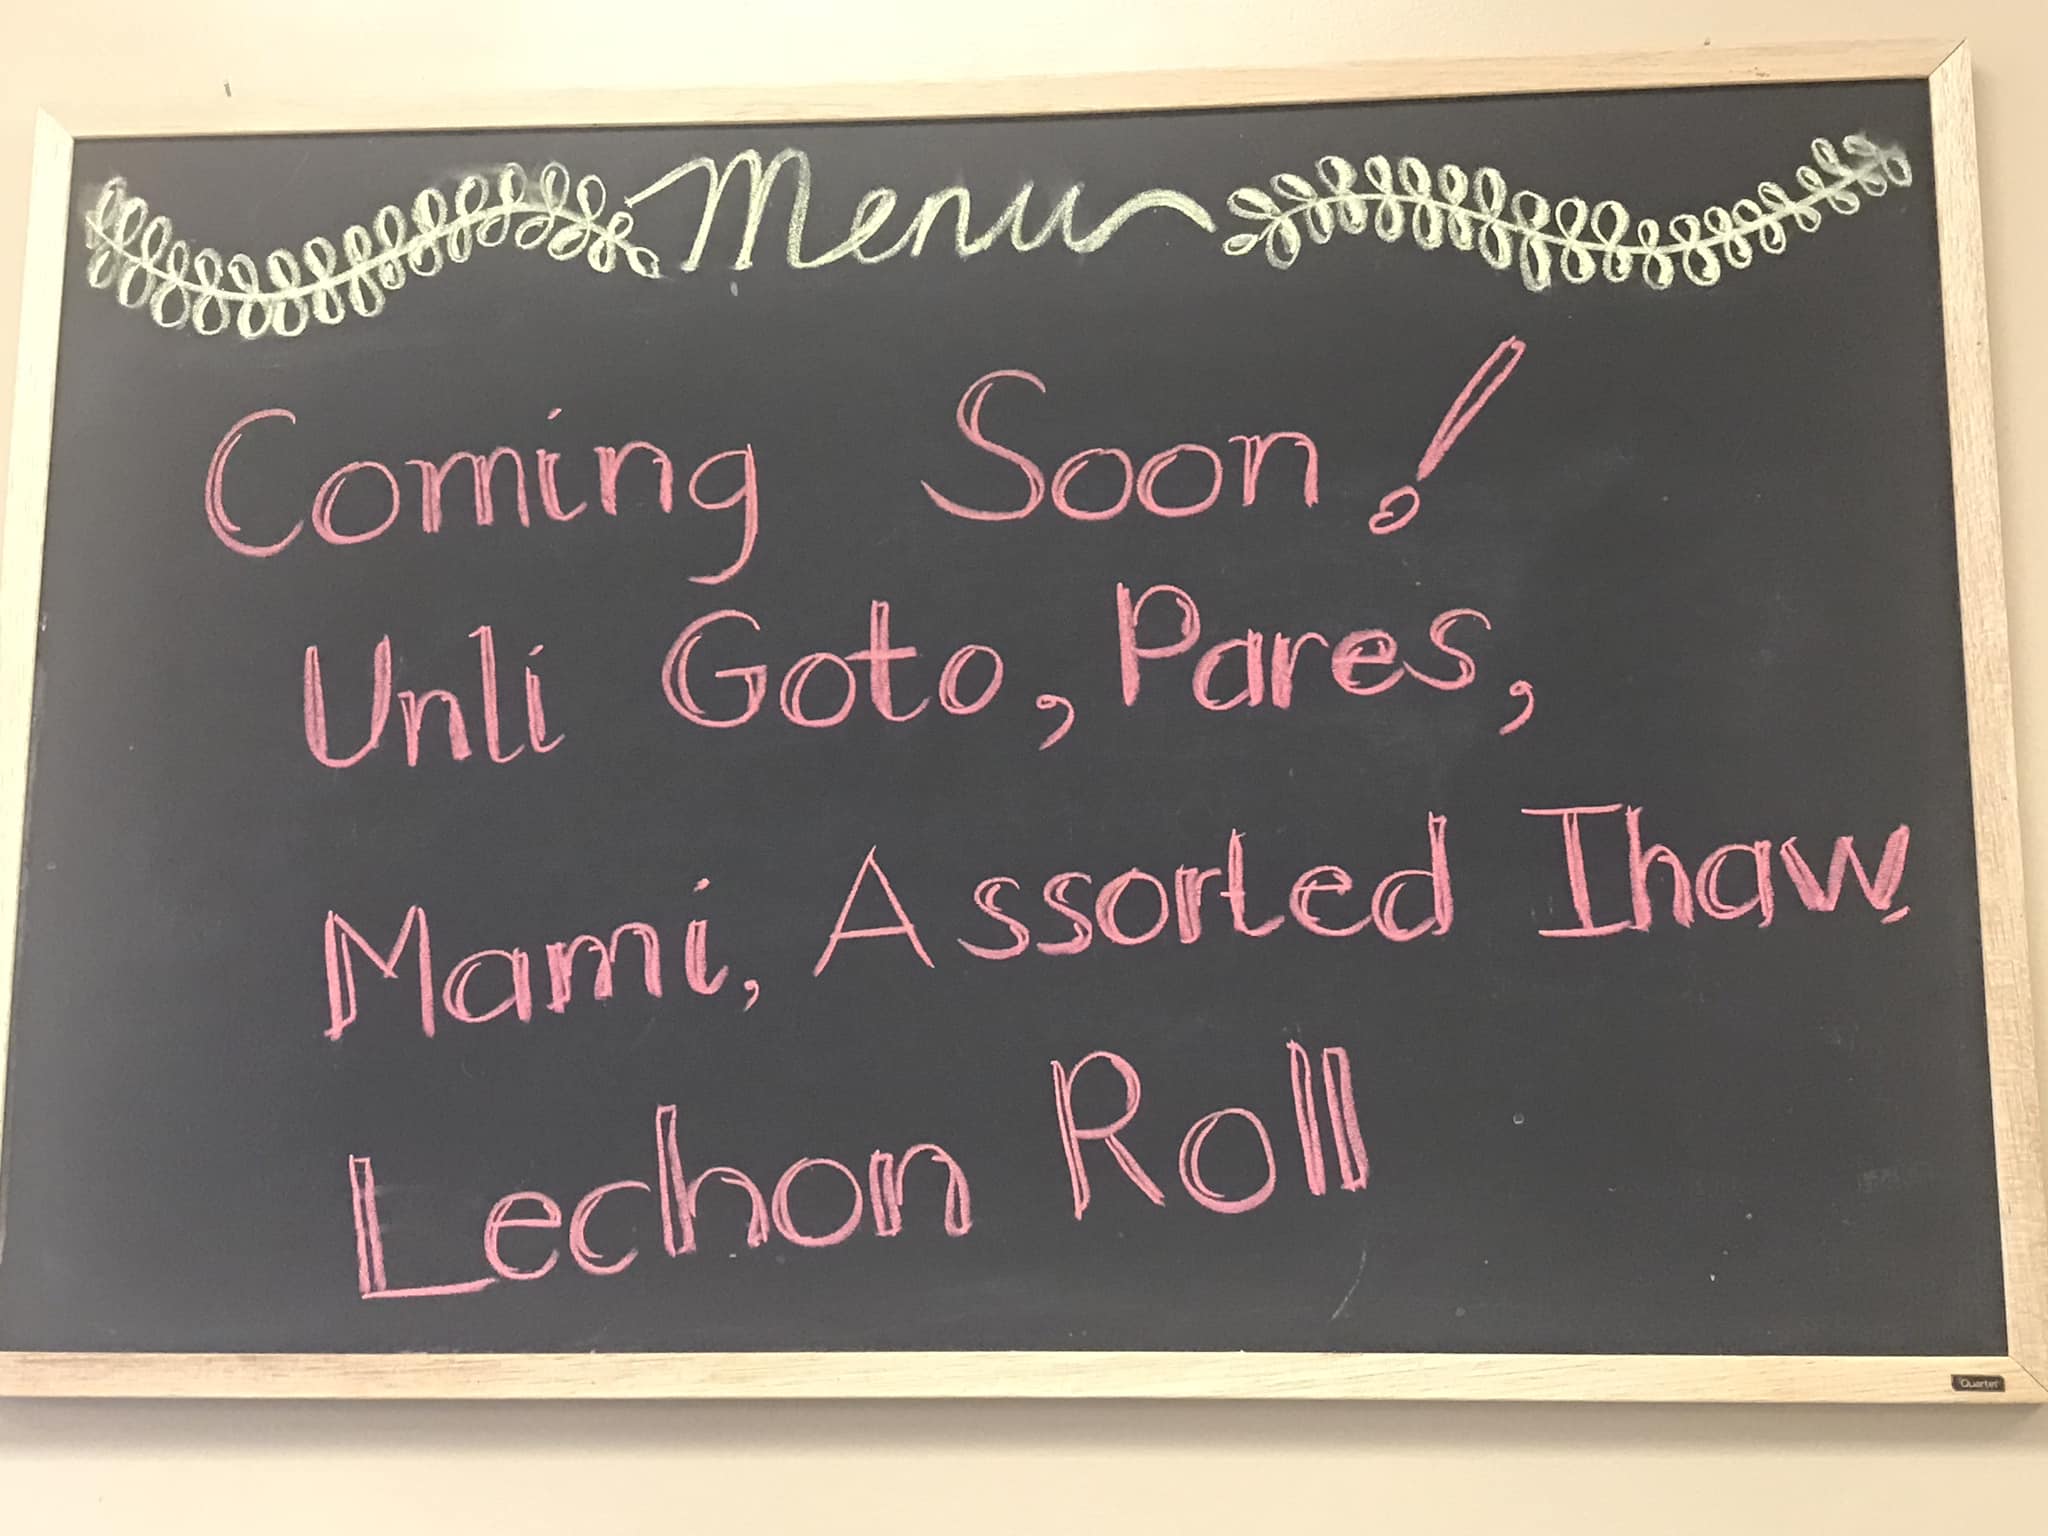 Menu
Coming Soon!
Unli Goto, Pares,
Mami, Assorted Ihaw,
Lechon Roll
Quartet